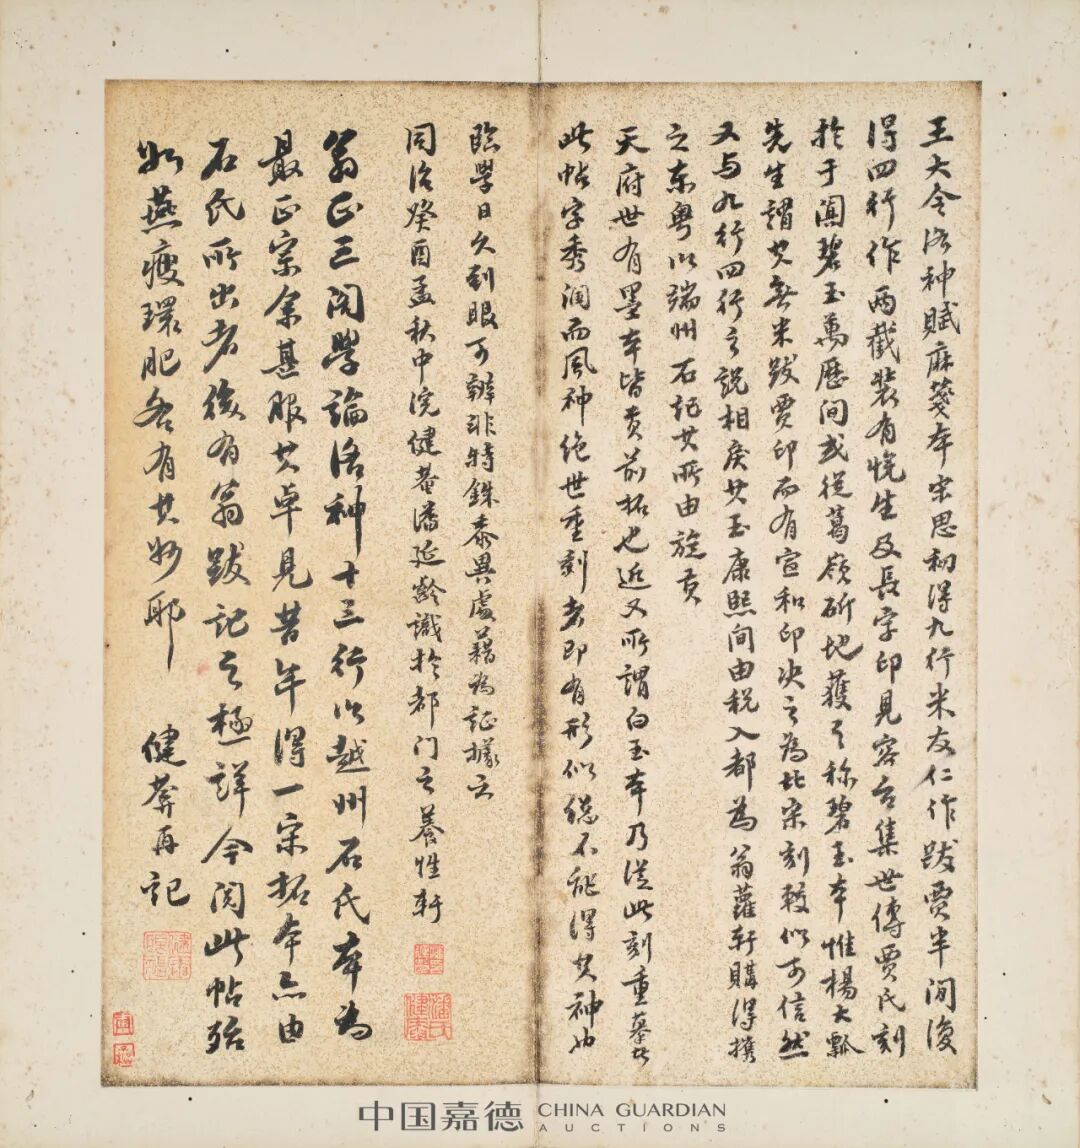 王大令洛神賦麻箋本宋思初得九行米友仁作跋賈半閒復
得四行作兩截裝有悦生及長字印見容台集世傳賈氏刻
於于闐碧玉萬歷间或從葛嶺斫地獲之称碧玉本惟楊大瓢
先生謂其無米跋賈印而有宣和印决之為北宋刻較似可信然
又与九行四行之説相戾其玉康熙间由税入都為翁蘿軒購得攜
之東粤以端州石記其所由旋貢
天府世有墨本皆貢前拓也近又所謂白玉本乃從此刻重摹者
此帖字秀潤而風神绝世重刻者即有形似總不能得其神也
臨學日久到眼可辨非特銖泰異處藉為証據云
同治癸酉孟秋中浣健菴潘延齡識於都门之養性軒
翁正三閣學論洛神十三行以越州石氏本為
最正宗余甚服其卓見昔年得一宋拓本亦由
石氏所出者後有翁跋記之極詳今閲此帖殆
如燕瘦環肥各有其妙耶
健菴再記
潘氏健菴
中国嘉德 CHINA GUARDIAN
AUCTIONS